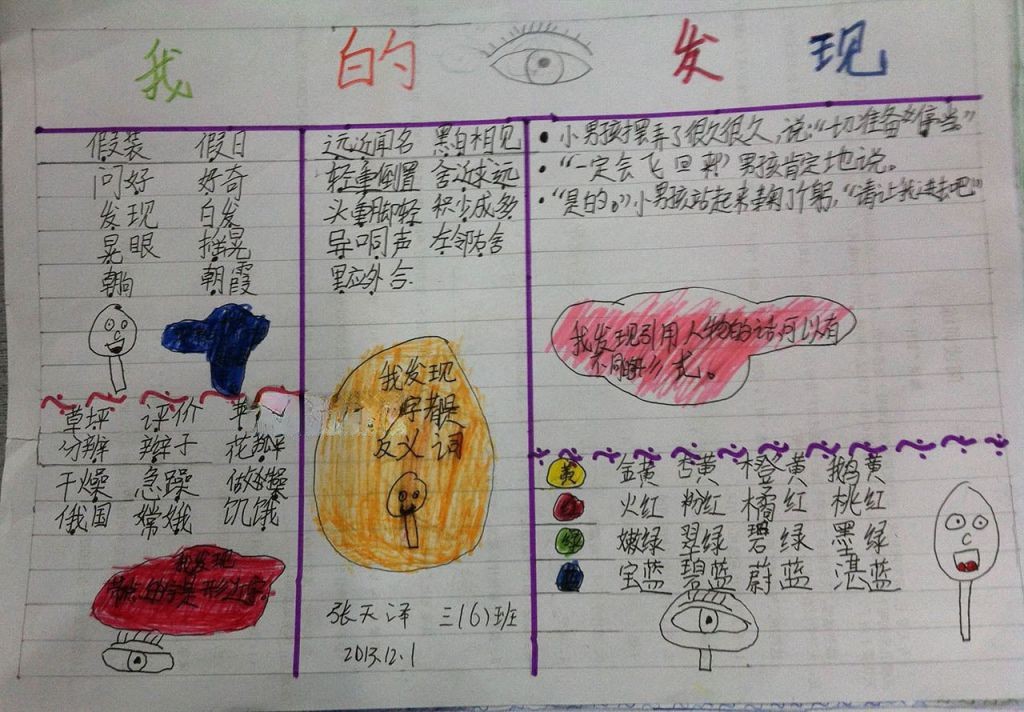 我的发现
假装 假日
问好 好奇
发现 白发
晃眼 摇晃
朝向 朝霞
草坪 评价 苹
分辨 辫子 花瓣
干燥 急躁 做体操
俄国 嫦娥 饥饿
我发现
远近闻名 黑白相见
轻重倒置 舍近求远
头重脚轻 积少成多
异口同声 左邻右舍
里应外合
我发现
字都是
反义词
张天泽 三(6)班
2013.12.1
•小男孩摆弄了很久很久,说:“一切准备停当”
•“一定会飞回来!”男孩肯定地说。
•“是的。”小男孩站起来鞠了个躬,“请让我进去吧”
我发现引用人物的话,可以有
不同的形式。
黄 金黄 杏黄 橙黄 鹅黄
红 火红 粉红 橘红 桃红
绿 嫩绿 翠绿 碧绿 墨绿
蓝 宝蓝 碧蓝 蔚蓝 湛蓝